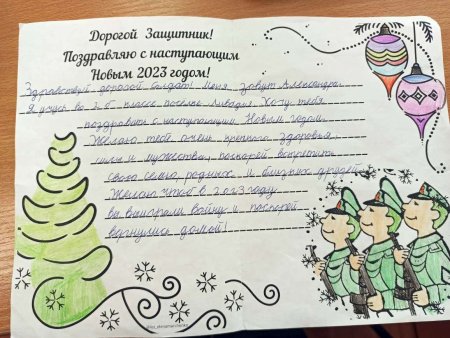 Дорогой Защитник!
Поздравляю с наступающим
Новым 2023 годом!
Здравствуй дорогой солдат! Меня зовут Александра.
Я учусь во 2 б классе поселка Ливадия. Хочу тебя
поздравить с наступающим Новым годом.
Желаю тебе очень крепкого здоровья,
силы и мужества, поскорей встретить
свою семью, родных и близких друзей.
Желаю чтоб в 2023 году
вы выиграли войну и поскорей
вернулись домой!